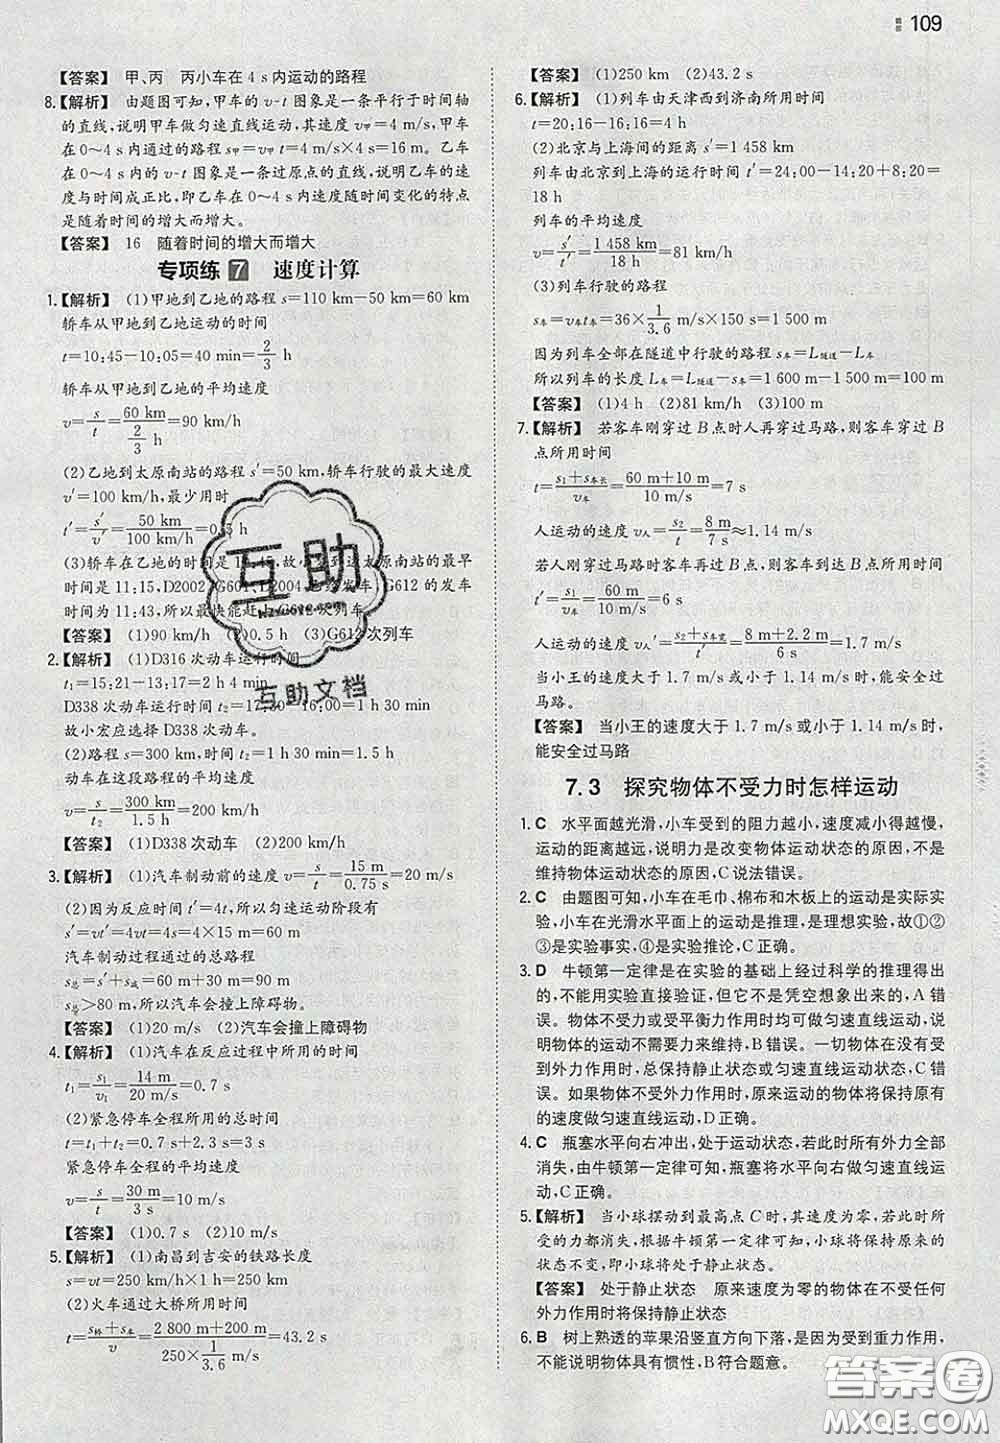 109
【答案】 甲、丙 丙小车在 4 s 内运动的路程
8.【解析】 由题图可知，甲车的 v-t 图象是一条平行于时间轴
的直线，说明甲车做匀速直线运动，其速度 v甲＝4 m/s，甲车
在 0～4 s 内通过的路程 s甲＝v甲t＝4 m/s×4 s＝16 m。乙车
在 0～4 s 的图象是一条过原点的直线，说明乙车的速
度与时间成正比，即乙车在 0～4 s 内速度随时间变化的特点
是随着时间的增大而增大。
【答案】 16 随着时间的增大而增大
专项练 7 速度计算
1.【解析】 (1)甲地到乙地的路程 s＝110 km－50 km＝60 km
轿车从甲地到乙地运动的时间
t＝10:45－10:05＝40 min＝2/3 h
轿车从甲地到乙地的平均速度
v＝s/t＝60 km/(2/3 h)＝90 km/h
(2)乙地到太原南站的路程 s′＝50 km，轿车行驶的最大速度
v′＝100 km/h，最少用时
t′＝s′/v′＝50 km/(100 km/h)＝0.5 h
(3)轿车在乙地的时间是 10:45，故小宏到达太原南站的最早
时间是 11:15，D2002、G601、D2004 已经发车，G612 的发车
时间为 11:43，所以最快能赶上 G612 次列车。
【答案】 (1)90 km/h (2)0.5 h (3)G612 次列车
2.【解析】 (1)D316 次动车运行时间
t₁＝15:21－13:17＝2 h 4 min
D338 次动车运行时间 t₂＝17:30－16:00＝1 h 30 min
故小宏应选择 D338 次动车。
(2)路程 s＝300 km，时间 t₂＝1 h 30 min＝1.5 h
动车在这段路程的平均速度
v＝s/t₂＝300 km/1.5 h＝200 km/h
【答案】 (1)D338 次动车 (2)200 km/h
3.【解析】 (1)汽车制动前的速度 v＝s/t＝15 m/0.75 s＝20 m/s
(2)因为反应时间 t′＝4t，所以匀速运动阶段有
s′＝vt′＝4vt＝4s＝4×15 m＝60 m
汽车制动过程通过的总路程
s总＝s′＋s减＝60 m＋30 m＝90 m
s总＞80 m，所以汽车会撞上障碍物。
【答案】 (1)20 m/s (2)汽车会撞上障碍物
4.【解析】 (1)汽车在反应过程中所用的时间
t₁＝s₁/v₁＝14 m/(20 m/s)＝0.7 s
(2)紧急停车全程所用的总时间
t＝t₁＋t₂＝0.7 s＋2.3 s＝3 s
紧急停车全程的平均速度
v＝s/t＝30 m/3 s＝10 m/s
【答案】 (1)0.7 s (2)10 m/s
5.【解析】 (1)南昌到吉安的铁路长度
s＝vt＝250 km/h×1 h＝250 km
(2)火车通过大桥所用时间
t＝(s桥＋s车)/v＝(2 800 m＋200 m)/(250×1/3.6 m/s)＝43.2 s
【答案】 (1)250 km (2)43.2 s
6.【解析】 (1)列车由天津西到济南所用时间
t＝20:16－16:16＝4 h
(2)北京与上海间的距离 s′＝1 458 km
列车由北京到上海的运行时间 t′＝24:00－14:20＋8:20＝
18 h
列车的平均速度
v＝s′/t′＝1 458 km/18 h＝81 km/h
(3)列车行驶的路程
s车＝v车t车＝36×1/3.6 m/s×150 s＝1 500 m
因为列车全部在隧道中行驶的路程 s车＝L隧道－L车
所以列车的长度 L车＝L隧道－s车＝1 600 m－1 500 m＝100 m
【答案】 (1)4 h (2)81 km/h (3)100 m
7.【解析】 若客车刚穿过 B 点时人再穿过马路，则客车穿过 B
点所用时间
t＝(s₁＋s车长)/v车＝(60 m＋10 m)/(10 m/s)＝7 s
人运动的速度 v人＝s₂/t＝8 m/7 s≈1.14 m/s
若人刚穿过马路时客车再过 B 点，则客车到达 B 点所用
时间
t′＝s₁/v车＝60 m/(10 m/s)＝6 s
人运动的速度 v人′＝(s₂＋s车宽)/t′＝(8 m＋2.2 m)/6 s＝1.7 m/s
当小王的速度大于 1.7 m/s 或小于 1.14 m/s 时，能安全过
马路。
【答案】 当小王的速度大于 1.7 m/s 或小于 1.14 m/s 时，
能安全过马路
7.3 探究物体不受力时怎样运动
1. C 水平面越光滑，小车受到的阻力越小，速度减小得越慢，
运动的距离越远，说明力是改变物体运动状态的原因，不是
维持物体运动状态的原因，C 说法错误。
2. C 由题图可知，小车在毛巾、棉布和木板上的运动是实际实
验，小车在光滑水平面上的运动是推理，是理想实验，故①②
③是实验事实，④是实验推论，C 正确。
3. D 牛顿第一定律是在实验的基础上经过科学的推理得出
的，不能用实验直接验证，但它不是凭空想象出来的，A 错
误。物体不受力或受平衡力作用时均可做匀速直线运动，说
明物体的运动不需要力来维持，B 错误。一切物体在没有受
到外力作用时，总保持静止状态或匀速直线运动状态，C 错
误。如果物体不受外力作用时，原来运动的物体将保持原来
的速度做匀速直线运动，D 正确。
4. C 瓶塞水平向右冲出，处于运动状态，若此时所有外力全部
消失，由牛顿第一定律可知，瓶塞将水平向右做匀速直线运
动，C 正确。
5.【解析】 当小球摆动到最高点 C 时，其速度为零，若此时所
受的力都消失，根据牛顿第一定律可知，小球将保持原来的
状态不变，即小球将处于静止状态。
【答案】 处于静止状态 原来速度为零的物体在不受任何
外力作用时将保持静止状态
6. B 树上熟透的苹果沿竖直方向下落，是因为受重力作用，
不能说明物体具有惯性，B 符合题意。
互助
互助文档
答案圈
MXQE.COM